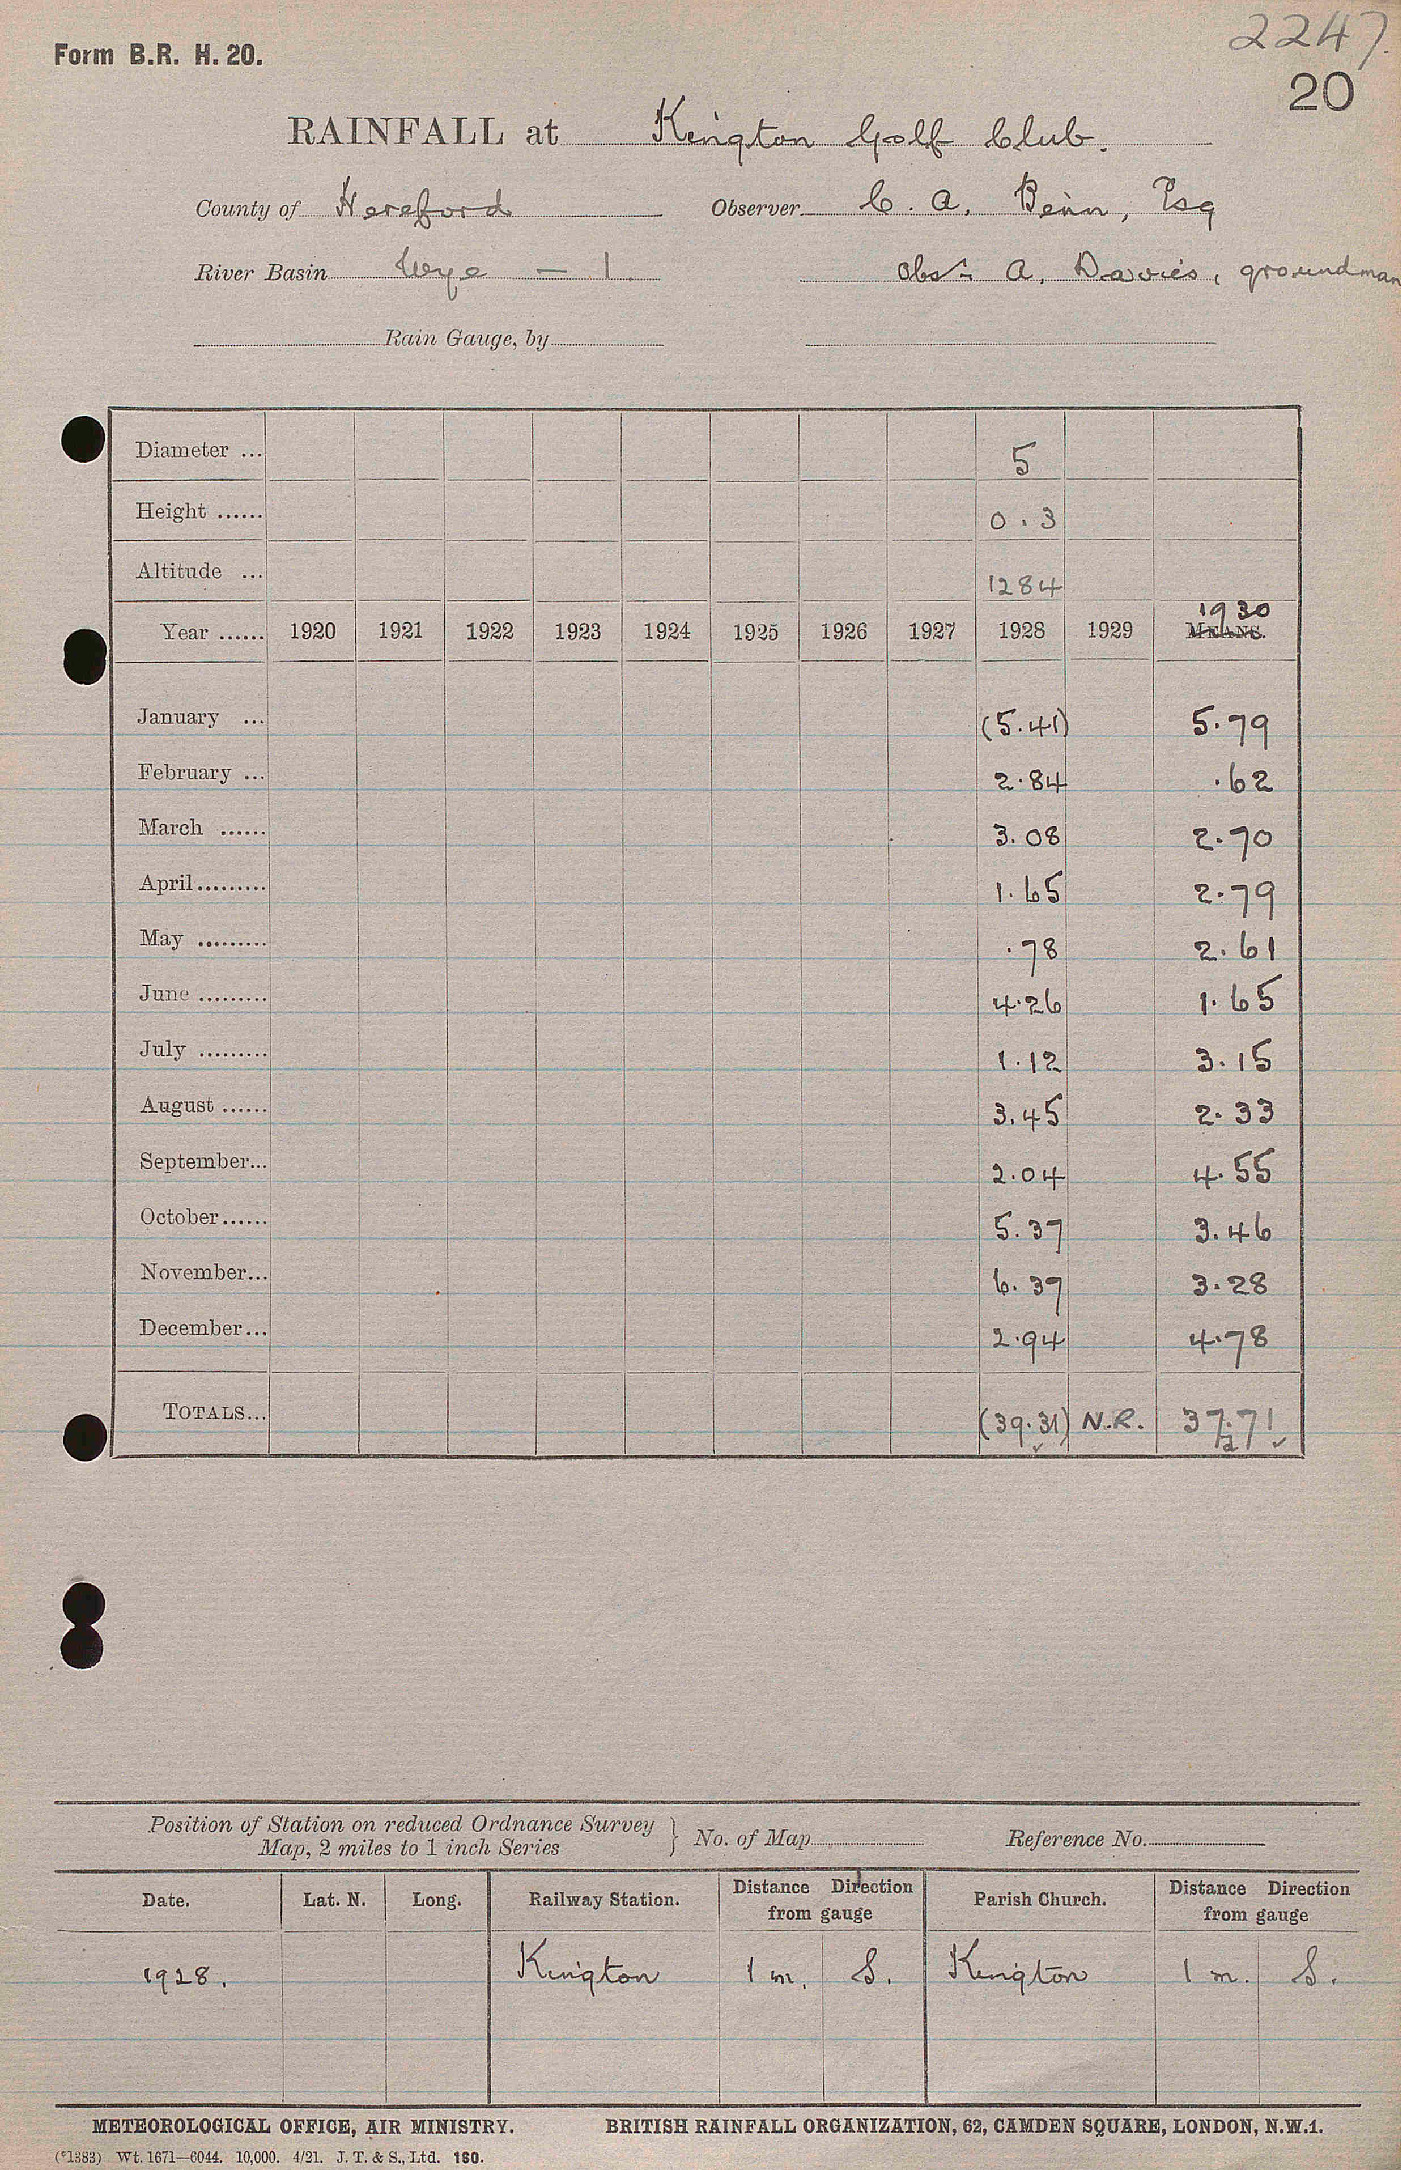 2247.
Form B.R. H. 20.
20
RAINFALL at Kington Golf Club.
County of Hereford Observer C. A. Benn, Esq
River Basin Wye — 1. Obsr. A. Davies, groundman
Rain Gauge, by
Diameter ... 5
Height ...... 0.3
Altitude ... 1284
Year ...... 1920 1921 1922 1923 1924 1925 1926 1927 1928 1929 MEANS. 1930
January ... (5.41) 5.79
February ... 2.84 .62
March ...... 3.08 2.70
April......... 1.65 2.79
May ......... .78 2.61
June ......... 4.26 1.65
July ......... 1.12 3.15
August ...... 3.45 2.33
September... 2.04 4.55
October...... 5.37 3.46
November... 6.37 3.28
December... 2.94 4.78
TOTALS... (39.31) N.R. 37.71
Position of Station on reduced Ordnance Survey
Map, 2 miles to 1 inch Series } No. of Map Reference No.
Date. Lat. N. Long. Railway Station. Distance Direction from gauge Parish Church. Distance Direction from gauge
1928. Kington 1 m. S. Kington 1 m. S.
METEOROLOGICAL OFFICE, AIR MINISTRY. BRITISH RAINFALL ORGANIZATION, 62, CAMDEN SQUARE, LONDON, N.W.1.
(*1383) Wt. 1671—6044. 10,000. 4/21. J. T. & S., Ltd. 180.